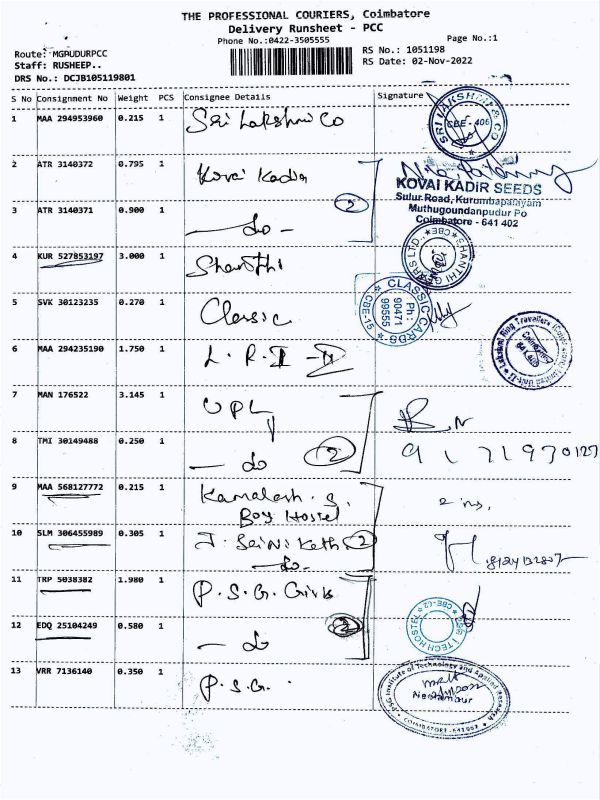 THE PROFESSIONAL COURIERS, Coimbatore
Delivery Runsheet - PCC
Phone No.:0422-3505555
Page No.:1
Route: MGPUDURPCC
RS No.: 1051198
Staff: RUSHEEP..
RS Date: 02-Nov-2022
DRS No.: DCJB105119801
S No Consignment No Weight PCS Consignee Details Signature
1 MAA 294953960 0.215 1 Sri Lakshmi Co
SRI LAKSHMI & CO CBE - 406
2 ATR 3140372 0.795 1 Kovai Kadir
KOVAI KADIR SEEDS
Sulur Road, Kurumbapalayam
Muthugoundanpudur Po
Coimbatore - 641 402
3 ATR 3140371 0.900 1 - do - 2
4 KUR 527853197 3.000 1 Shanthi
SHANTHI GEARS LTD., CBE
5 SVK 30123235 0.270 1 Classic
CLASSIC CARDS CBE-15 Ph : 90471 99555
6 MAA 294235190 1.750 1 L. R. I - II
7 MAN 176522 3.145 1 UPL
8 TMI 30149488 0.250 1 - do 2
9 MAA 568127772 0.215 1 Kamalesh. S.
Boy Hostel
10 SLM 306455989 0.305 1 2
- do -
11 TRP 5038382 1.980 1 P. S. G. Girls
12 EDQ 25104249 0.580 1 - do 2
I TECH HOSTEL CBE-62
13 VRR 7136140 0.350 1 P. S. G.
PSG Institute of Technology and Applied Research
Neelambur
COIMBATORE - 641 062